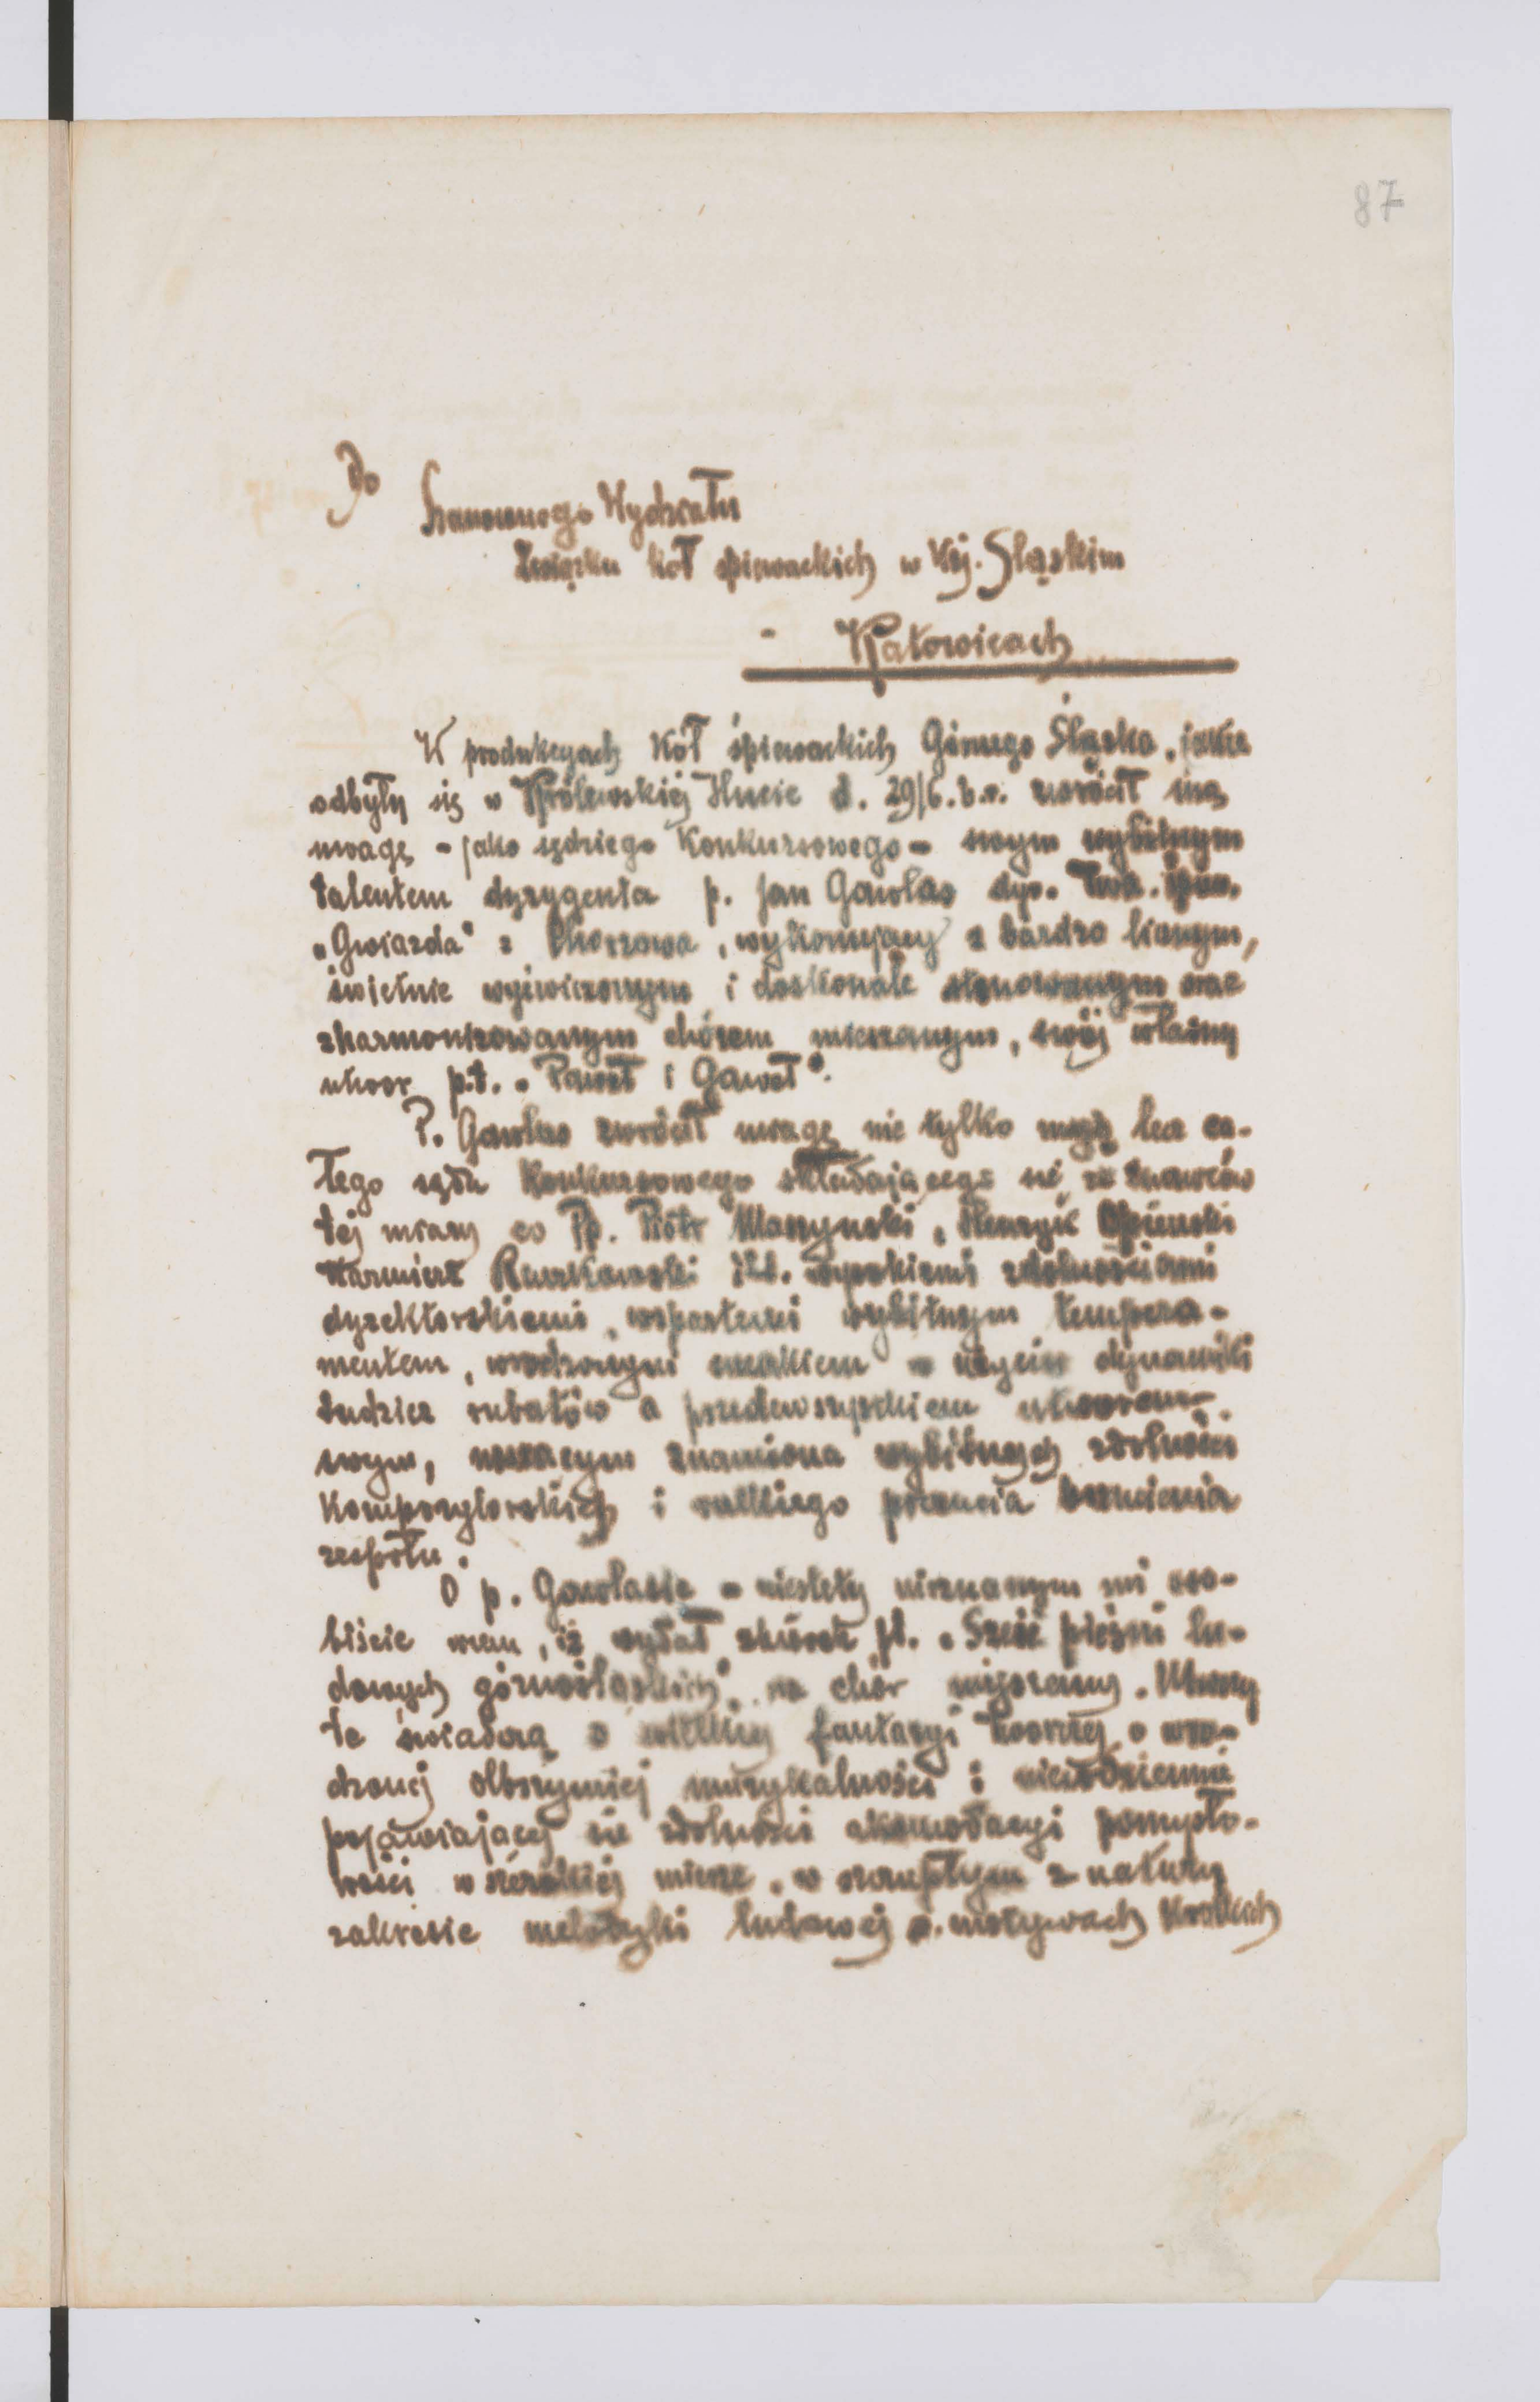 87
Do
Szanownego Wydziału
Związku Kół śpiewackich w Woj. Śląskim
Katowicach
W produkcyach Kół śpiewackich Górnego Śląska, jakie
odbyły się w Królewskiej Hucie d. 29/6. b.r. zwrócił mą
uwagę - jako sędziego Konkursowego - swym wybitnym
talentem dyrygenta p. Jan Gawlas dyr. Tow. śpiew.
„Gwiazda" z Chorzowa, wykonujący z bardzo licznym,
świetnie wyćwiczonym i doskonale stonowanym oraz
zharmonizowanym chórem mieszanym, swój własny
utwór p.t. „Paweł i Gaweł".
P. Gawlas zwrócił uwagę nie tylko moją lecz ca-
łego sądu Konkursowego składającego się ze znawców
tej miary co Pp. Piotr Maszyński, Henryk Opieński
Kazmierz itd. wysokiemi zdolnościami
dyrektorskiemi, wspartemi wybitnym tempera-
mentem, wrodzonym smakiem w użyciu dynamiki
tudzież rubatów a przedewszystkiem utworem
swym, noszącym znamiona wybitnych zdolności
kompozytorskich i wielkiego poczucia brzmienia
zespołu.
O p. Gawlasie - niestety nieznanym mi oso-
biście wiem, iż wydał zbiorek pt. „Sześć pieśni lu-
dowych górnośląskich" na chór mieszany. Utwory
te świadczą o wielkiej fantazyi twórczej, o wro-
dzonej olbrzymiej muzykalności i niecodziennie
pojawiającej się zdolności akomodacyi pomysło-
wości w szerokiej mierze, w szczupłym z natury
zakresie melodyki ludowej o motywach krótkich